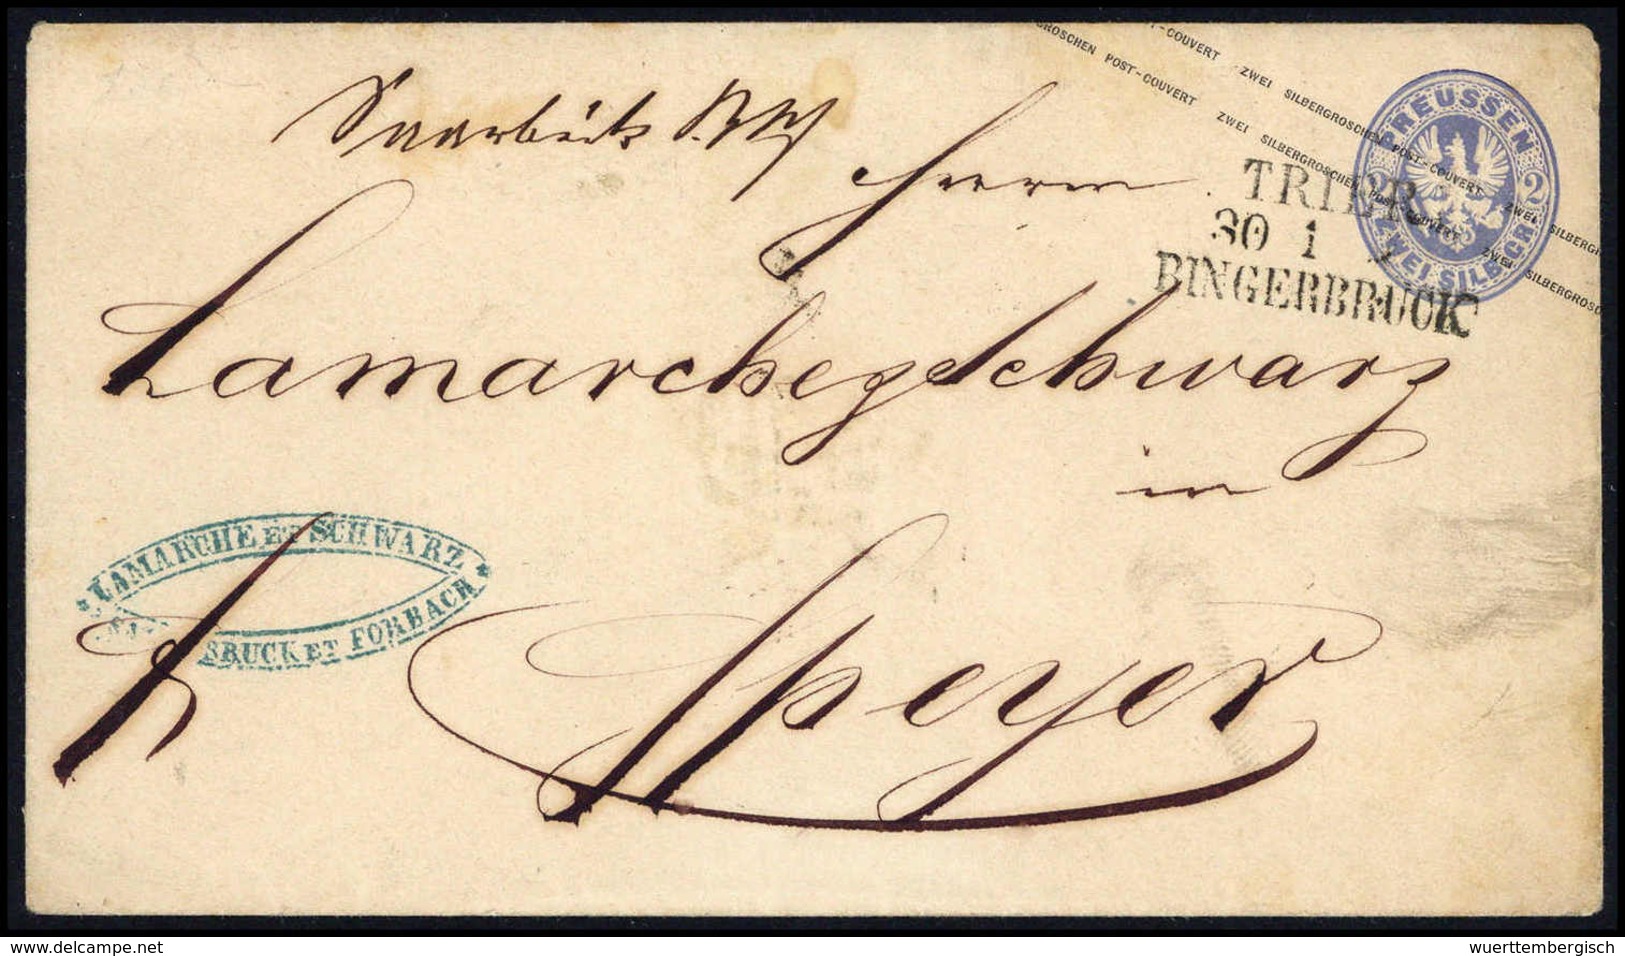 ZWEI SILBERGROSCHEN POST-COUVERT ZWEI SILBERGROSCHEN
GROSCHEN POST-COUVERT ZWEI SILBERGROSCHEN POST-COUVERT ZWEI SILBERGROSCHEN
PREUSSEN
2 2
ZWEI SILBERGR.
Herrn
TRIER
30 1
BINGERBRUCK
Lamarche & Schwarz
in
* LAMARCHE ET SCHWARZ *
SBRUCK ET FORBACH
Speyer
www.delcampe.net
wuerttembergisch